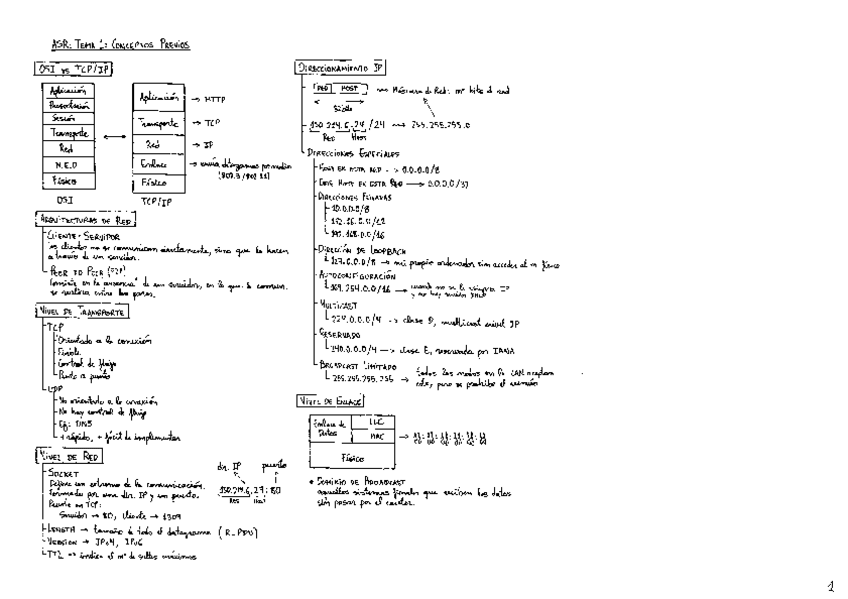 ASR: TEMA 1: CONCEPTOS PREVIOS
OSI vs TCP/IP
Aplicación
Presentación
Sesión
Transporte
Red
N.E.D
Físico
OSI
Aplicación → HTTP
Transporte → TCP
Red → IP
Enlace →
Físico
TCP/IP
ARQUITECTURAS DE RED
CLIENTE-SERVIDOR
los clientes no se comunican directamente, sino que lo hacen
a través de un servidor.
PEER TO PEER (P2P)
Consiste en la ausencia de un servidor, en lo que la comun.
se realiza entre los pares.
NIVEL DE TRANSPORTE
TCP
Orientado a la conexión
Fiable
Control de flujo
Punto a punto
UDP
No orientado a la conexión
No hay control de flujo
Ej: DNS
+ rápido, + fácil de implementar
NIVEL DE RED
SOCKET
Define un extremo de la comunicación.
Formado por una dir. IP y un puerto.
Puerto en TCP:
Servidor → 80, cliente →
dir. IP puerto
150.214.6.27:80
Red Host
LENGTH → tamaño de todo el datagrama (R_PDU)
VERSION → IPv4, IPv6
TTL → indica el nº de saltos máximos
DIRECCIONAMIENTO IP
RED HOST → Máscara de Red: nº bits d red
32 bits
150.214.6.24/24 → 255.255.255.0
Red Host
DIRECCIONES ESPECIALES
HOST EN ESTA RED → 0.0.0.0/8
HOST EN ESTA RED → 0.0.0.0/32
DIRECCIONES PRIVADAS
10.0.0.0/8
172.16.0.0/12
192.168.0.0/16
DIRECCIÓN DE LOOPBACK
127.0.0.0/8 → mi propio ordenador sin acceder al m físico
AUTOCONFIGURACIÓN
169.254.0.0/16 →
MULTICAST
224.0.0.0/4 → clase D, multicast nivel IP
RESERVADO
240.0.0.0/4 → clase E, reservada por IANA
BROADCAST LIMITADO
255.255.255.255 → todos los nodos en la LAN aceptan
este, pero se prohibe el reenvío
NIVEL DE ENLACE
Enlace de Datos
LLC
MAC
Físico
DOMINIO DE BROADCAST
aquellos sistemas finales que reciben los datos
sin pasar por el router.
1